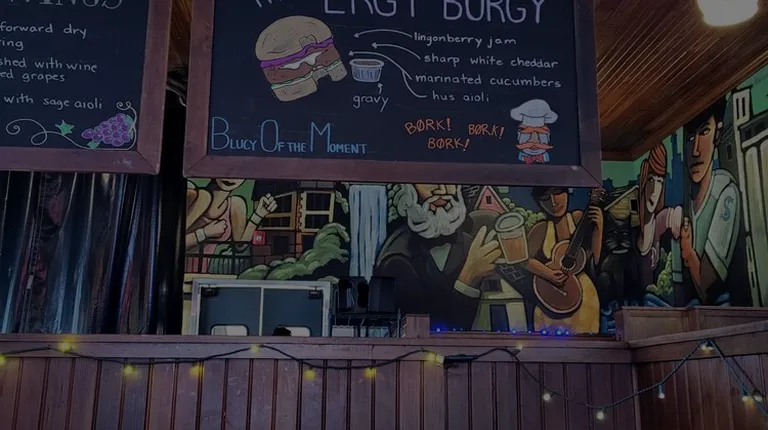 forward dry
ring
shed with wine
ed grapes
with sage aioli
ERGY BURGY
lingonberry jam
sharp white cheddar
marinated cucumbers
hus aioli
gravy
BLUCY OF THE MOMENT
BØRK! BØRK!
BØRK!
S